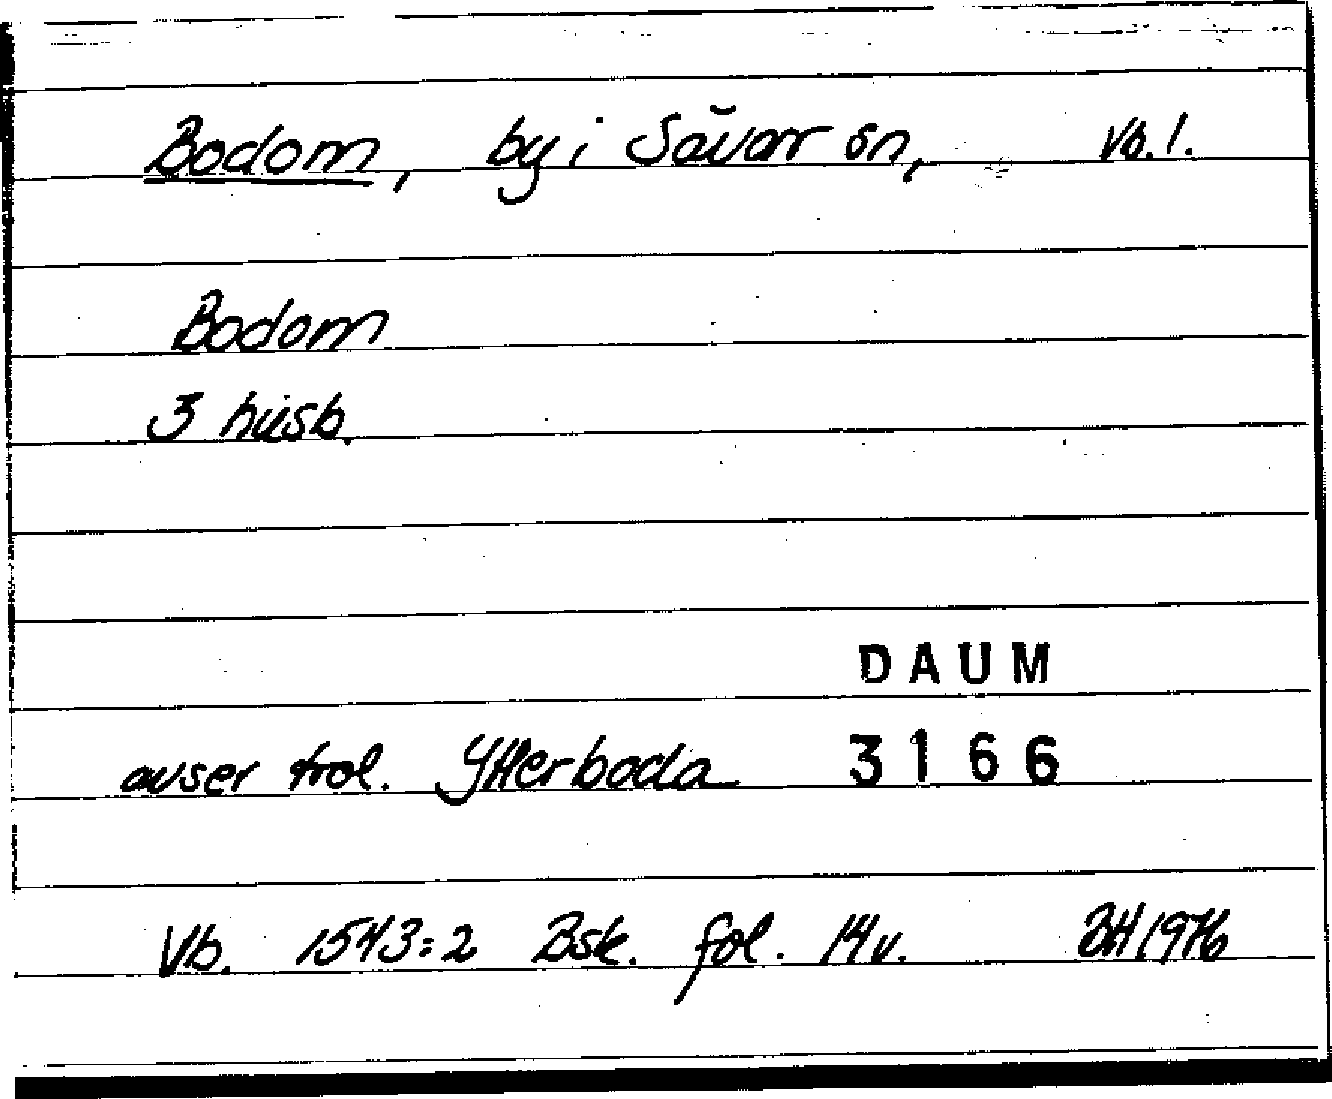 Bodom, by i Sävar sn, Vb. l.
Bodom
3 husb.
DAUM
avser trol. Ytterboda 3166
Vb. 1543:2 Bsk. fol. 14v. BH 1976